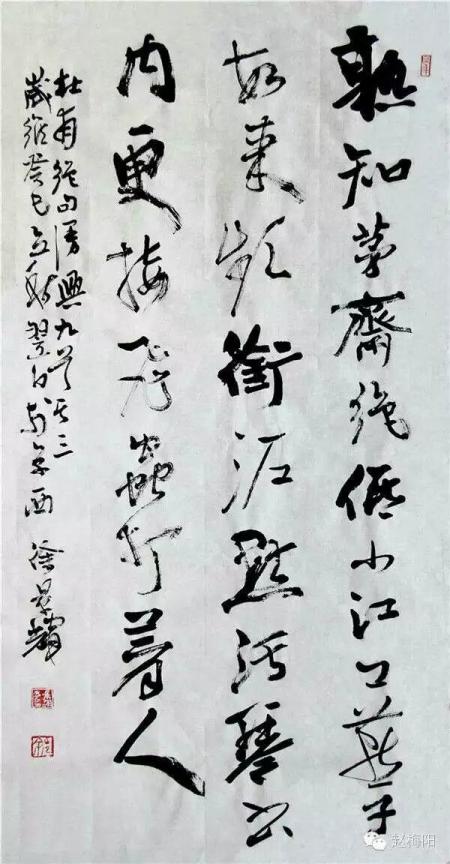 熟知茅齋絕低小江上燕子
故來頻銜泥點污琴書
内更接飛蟲打着人
杜甫絕句漫興九首其三
歲維癸巳立秋翌日於京西 徐
赵梅阳